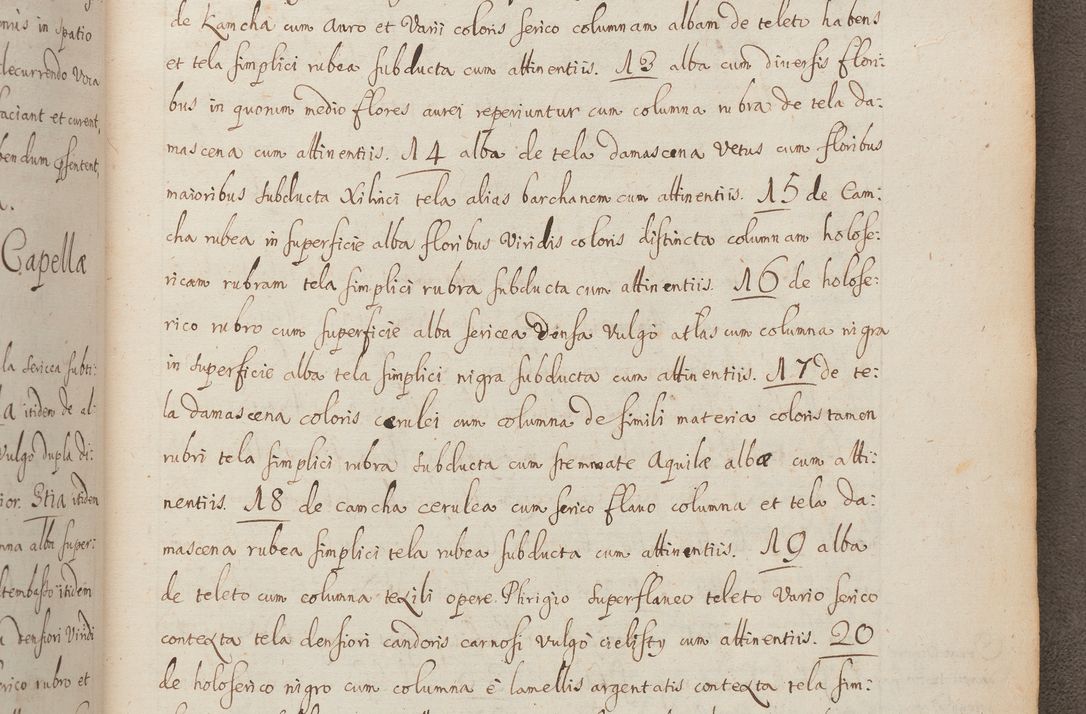 nius in spatio
decurrendo Vera
faciant et curent,
bendum pſentent,
Capellæ
la sericea subti:
a itidem de al:
Vulgo dupla di:
ior. Stia itidem
nna alba super:
itidem
densiori Viridi
erico rubro et
de Kamcha cum Auro et Varii coloris serico columnam albam de teleto habens
et tela simplici rubea subducta cum attinentiis. 13 alba cum diversis flori:
bus in quorum medio flores aurei reperiuntur cum columna rubra de tela da:
mascena cum attinentiis. 14 alba de tela damascena Vetus cum floribus
maioribus subducta Xilinci tela alias barchanem cum attinentiis. 15 de Cam:
cha rubea in superficie alba floribus Viridis coloris distincta columnam holose:
ricam rubram tela simplici rubra subducta cum attinentiis. 16 de holose:
rico rubro cum superficie alba sericea densa Vulgò atlas cum columna nigra
in superficie alba tela simplici nigra subducta cum attinentiis. 17 de te:
la damascena coloris cerulei cum columna de simili materia coloris tamen
rubri tela simplici rubra subducta cum stemmate Aquilæ albæ cum atti:
nentiis. 18 de camcha cerulea cum serico flavo columna et tela da:
mascena rubea simplici tela rubea subducta cum attinentiis. 19 alba
de teleto cum columna texili opere Phrigio superflaneo teleto Vario serico
contexta tela densiori candoris carnosi Vulgò cielisty cum attinentiis. 20
de holoserico nigro cum columna è lamellis argentatis contexta tela sim: